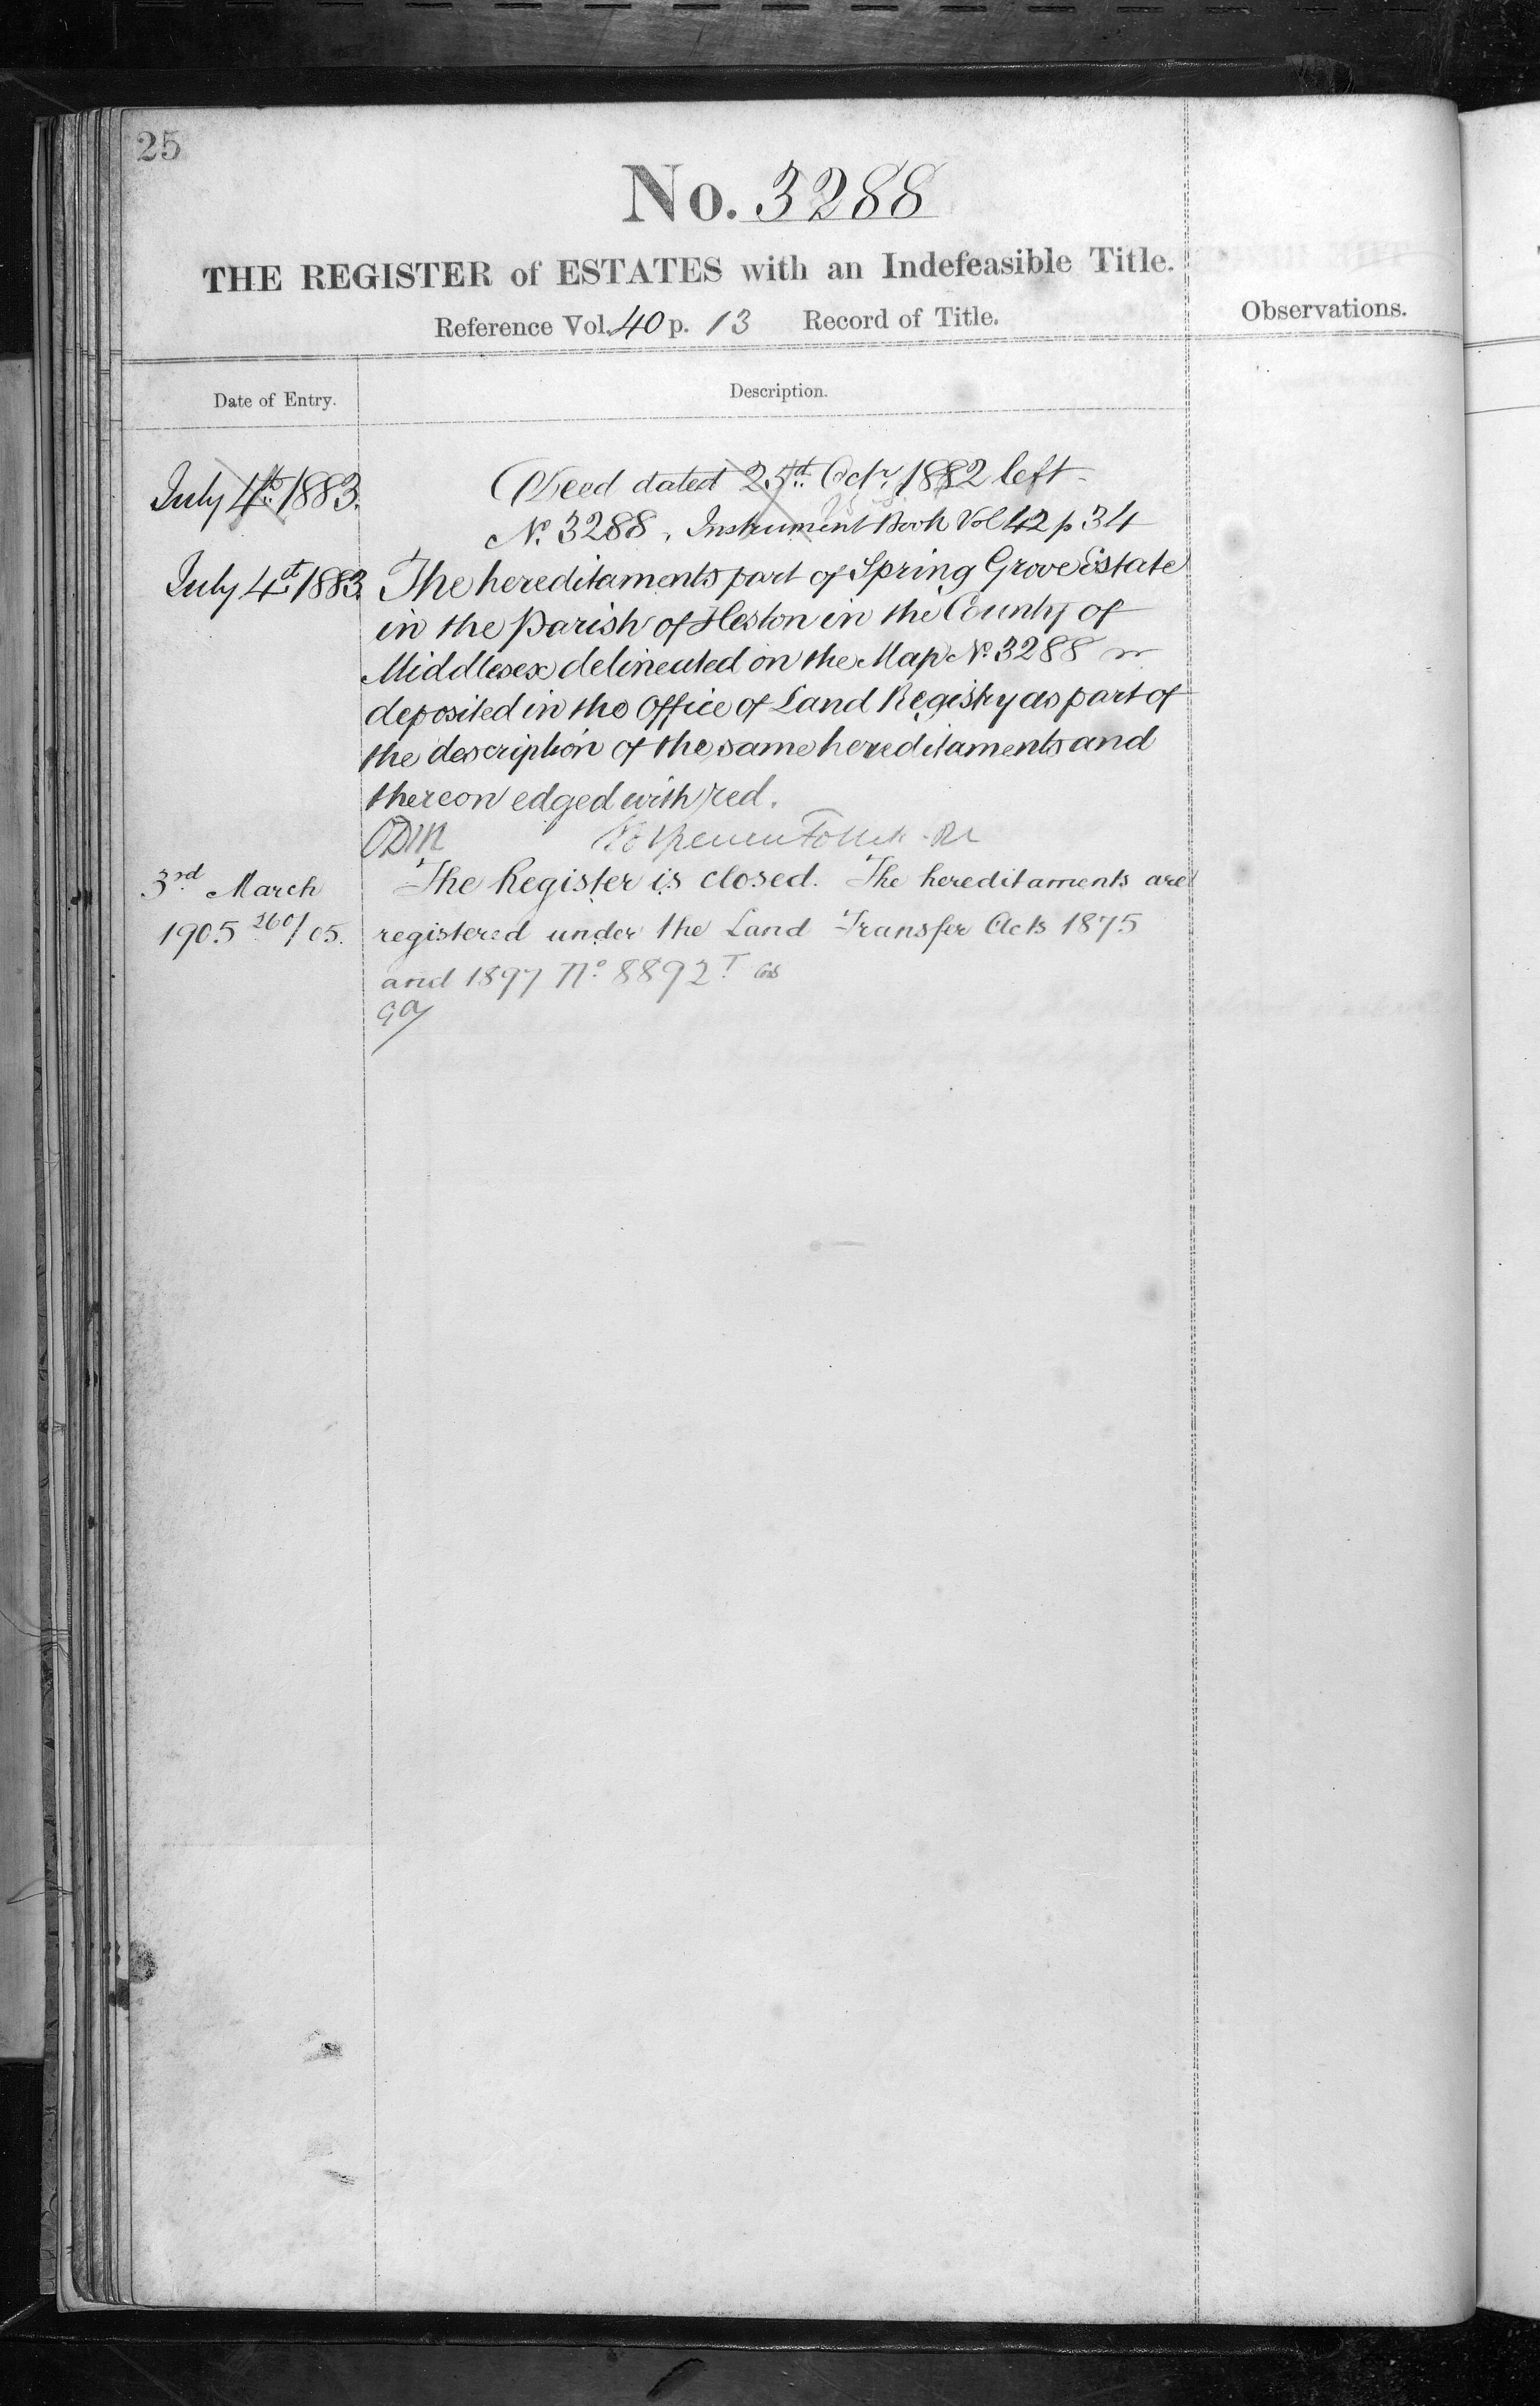 25
No. 3288
THE REGISTER of ESTATES with an Indefeasible Title.
Reference Vol. 40 p. 13 Record of Title.
Observations.
Date of Entry.
Description.
July 4th 1883.
Deed dated 25th Octr. 1882 left
No. 3288, Instrument Book Vol 42 p 34
July 4th 1883. The hereditaments part of Spring Grove Estate
in the Parish of Heston in the County of
Middlesex delineated on the Map No. 3288
deposited in the Office of Land Registry as part of
the description of the same hereditaments and
thereon edged with red.
3rd March The Register is closed. The hereditaments are
1905 260/05. registered under the Land Transfer Acts 1875
and 1897 No 8892